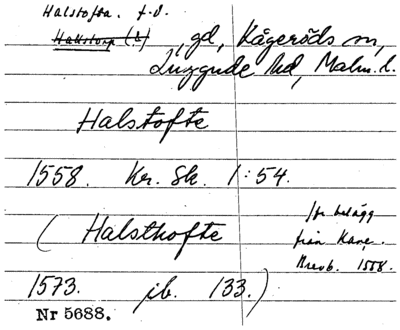 Halstofta. f.d.
Hallstorp (?), gd, Kågeröds sn,
Luggude hd, Malm. l.
Halstofte
1558. Kr. Sk. 1:54.
(Halsthofte
jfr belägg
från Kane.
Brevb. 1558.
1573. jb. 133.)
Nr 5688.